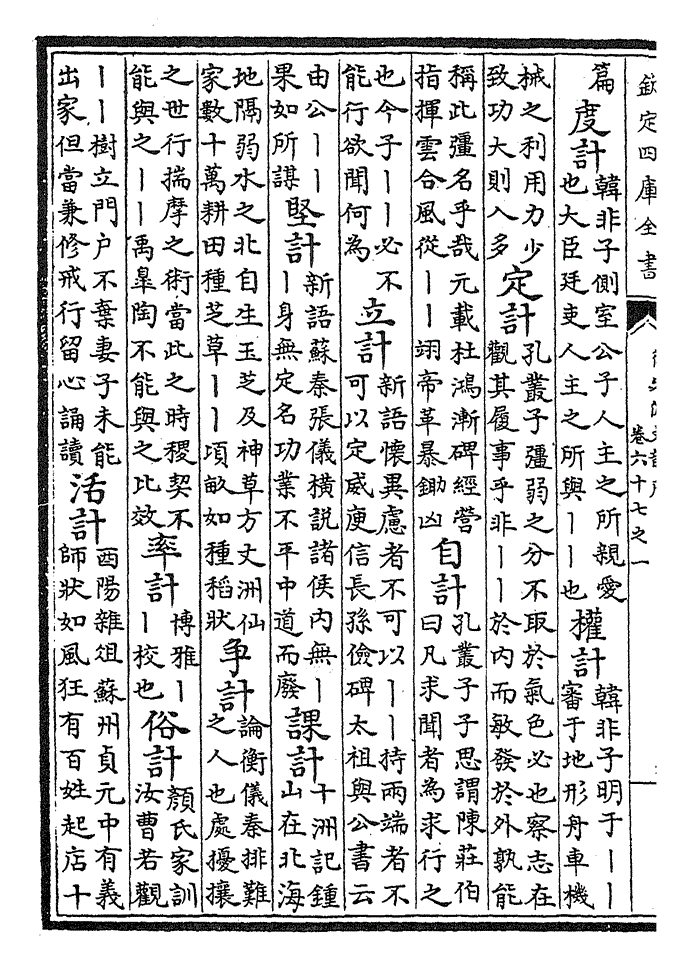 欽定四庫全書
卷六十七之一
篇
度計
韓非子側室公子人主之所親愛
也大臣廷吏人主之所與丨丨也
權計
韓非子明于丨丨
審于地形舟車機
械之利用力少
致功大則入多
定計
孔叢子彊弱之分不取於氣色必也察志在
觀其履事乎非丨丨於内而敏發於外孰能
稱此彊名乎哉元載杜鴻漸碑經營
指揮雲合風從丨丨翊帝革暴鋤凶
自計
孔叢子子思謂陳莊伯
曰凡求聞者為求行之
也今子丨丨必不
能行欲聞何為
立計
新語懷異慮者不可以丨丨持兩端者不
可以定威庾信長孫儉碑太祖與公書云
由公丨丨
果如所謀
堅計
新語蘇秦張儀橫説諸侯内無丨
丨身無定名功業不平中道而廢
課計
十洲記鍾
山在北海
地隔弱水之北自生玉芝及神草方丈洲仙
家數十萬耕田種芝草丨丨頃畝如種稻狀
争計
論衡儀秦排難
之人也處擾攘
之世行揣摩之術當此之時稷契不
能與之丨丨禹臯陶不能與之比效
率計
博雅丨
丨校也
俗計
顔氏家訓
汝曹若觀
丨丨樹立門户不棄妻子未能
出家但當兼修戒行留心誦讀
活計
酉陽雜俎蘇州貞元中有義
師狀如風狂有百姓起店十